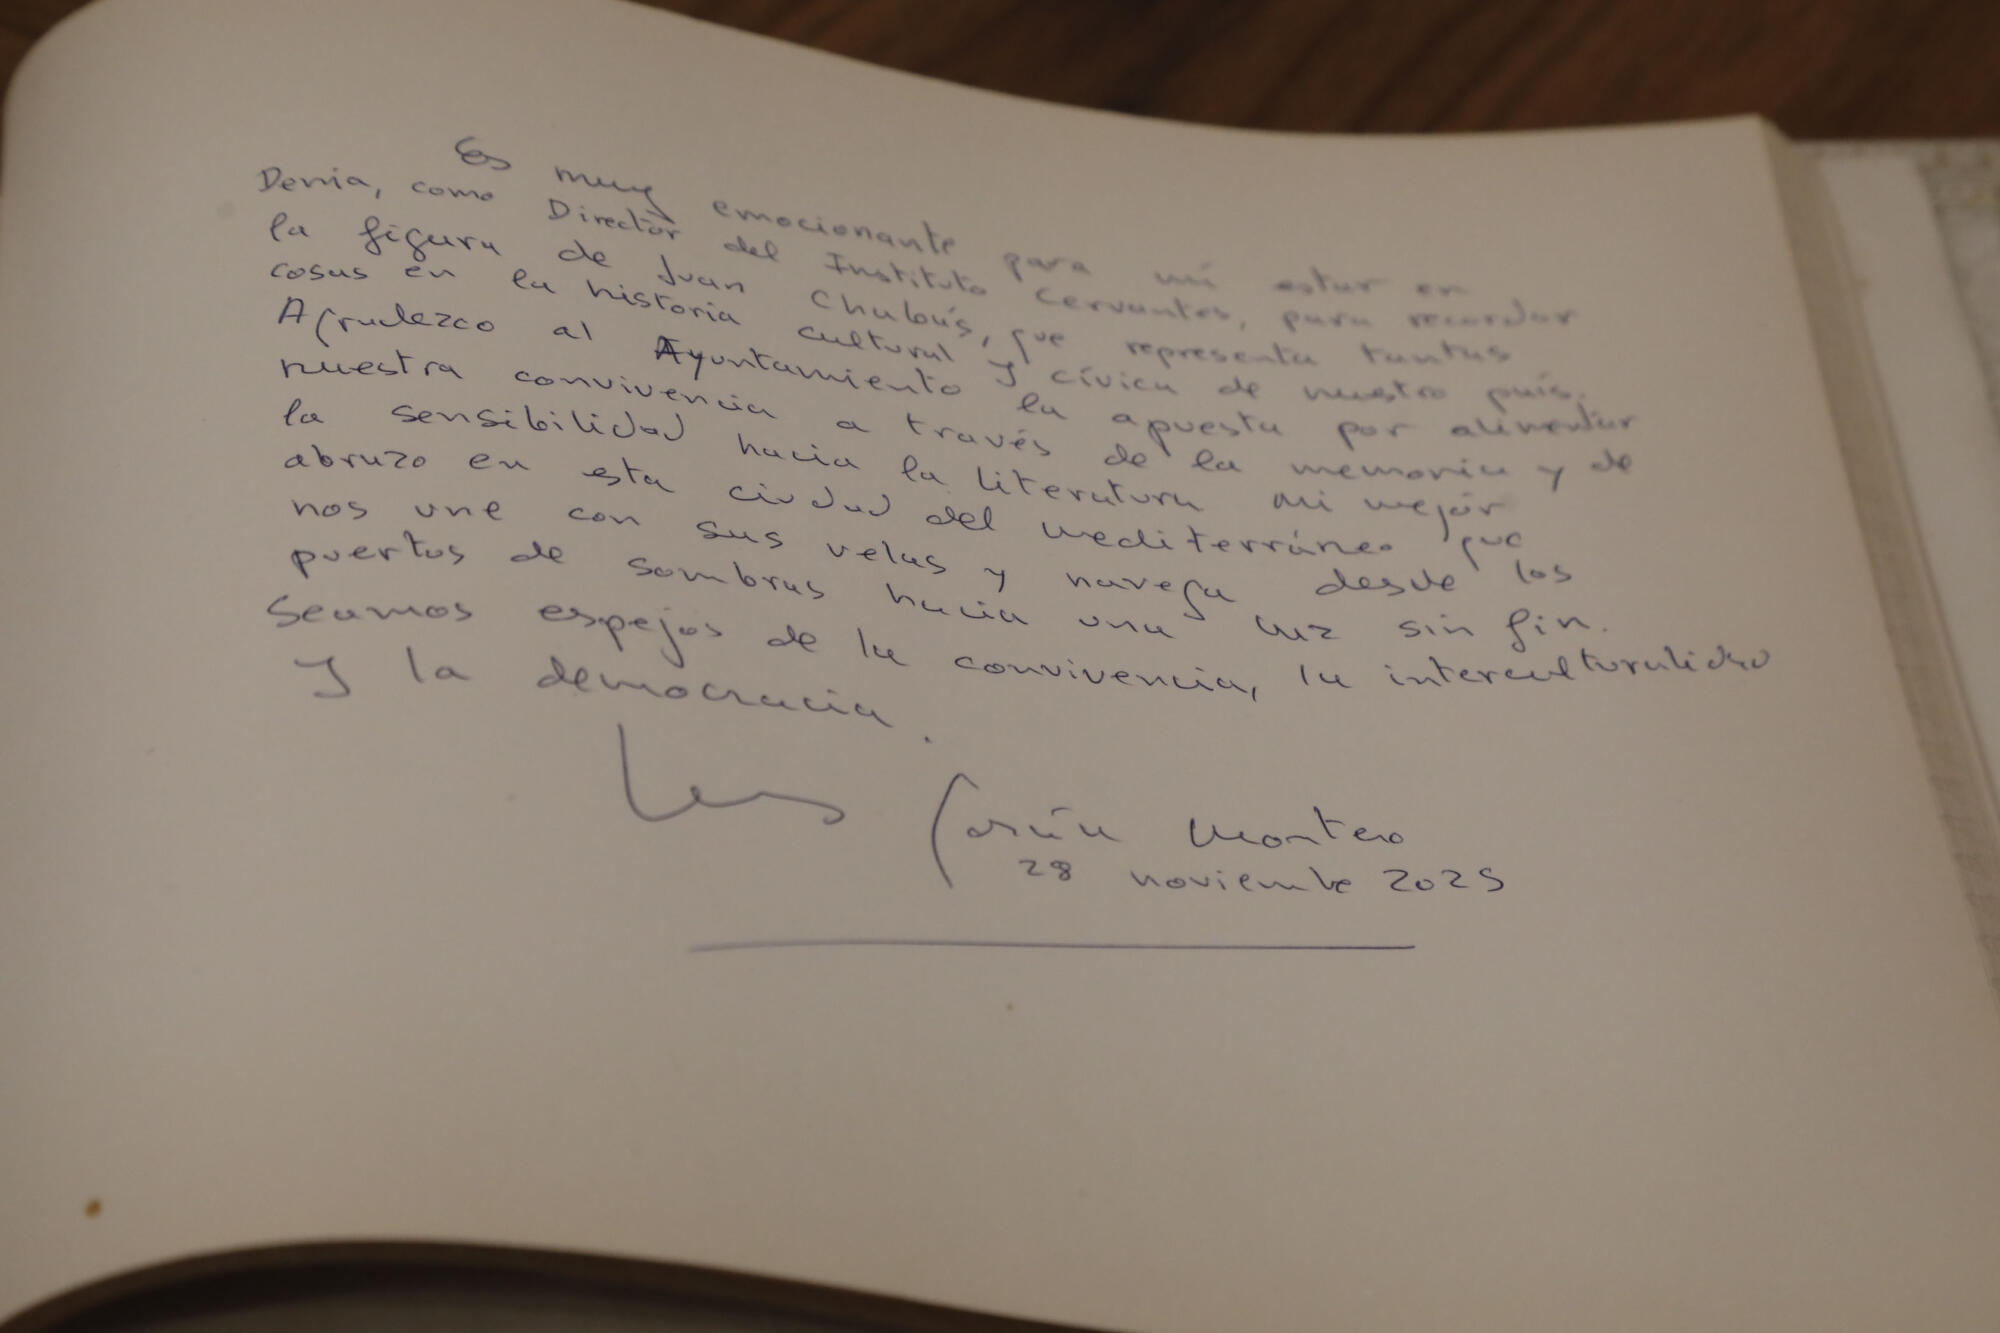 Es muy emocionante para mí estar en
Denia, como Director del Instituto Cervantes, para recordar
la figura de Juan Chabás, que representa tantas
cosas en la historia cultural y cívica de nuestro país.
Agradezco al Ayuntamiento la apuesta por alimentar
nuestra convivencia a través de la memoria y de
la sensibilidad hacia la literatura. Mi mejor
abrazo en esta ciudad del Mediterráneo que
nos une con sus velas y navega desde los
puertos de sombras hacia una luz sin fin.
Seamos espejos de la convivencia, la interculturalidad
y la democracia.
Luis García Montero
28 noviembre 2025